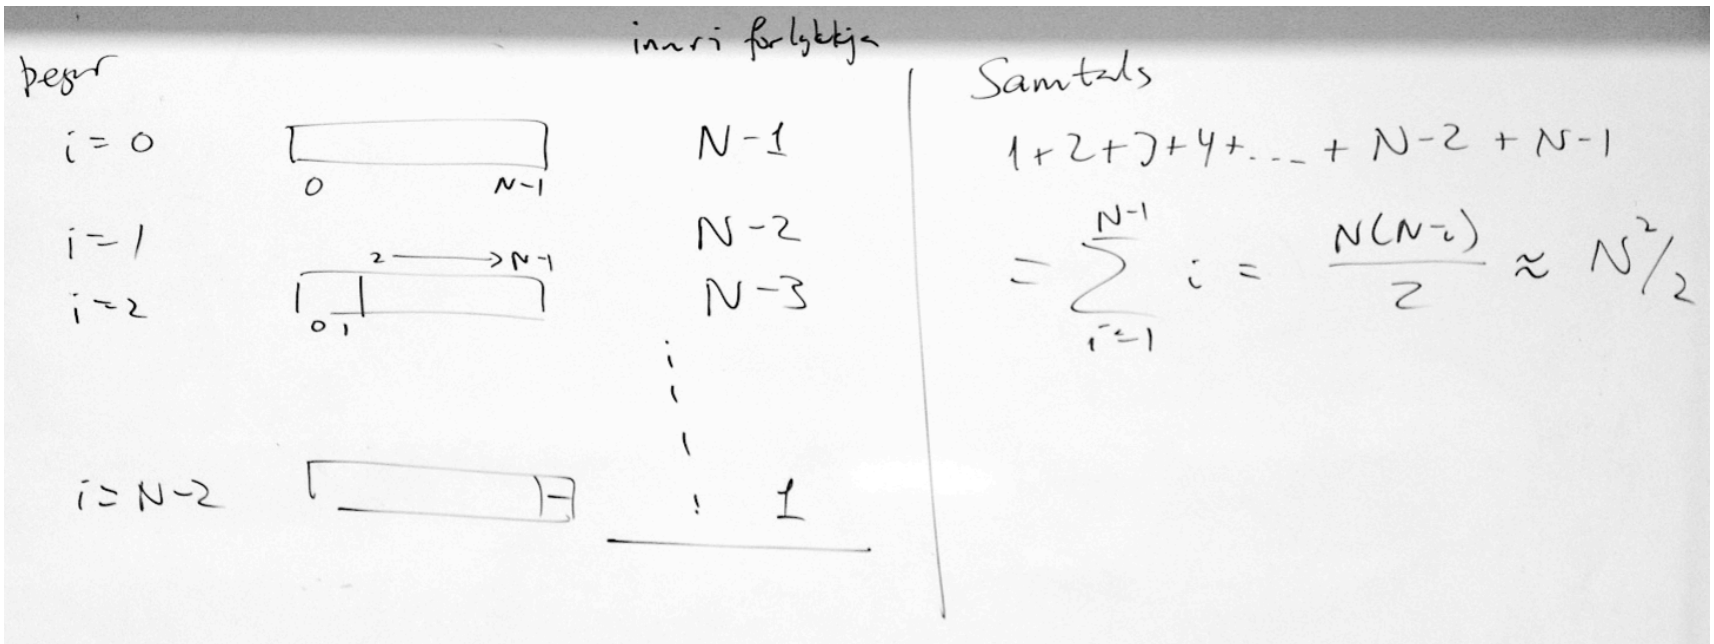 innri forlykkja
þegar
i = 0
0 N-1
N-1
i = 1
N-2
2 → N-1
i = 2
0 1
N-3
i = N-2
1
Samtals
1 + 2 + 3 + 4 + .... + N-2 + N-1
= \sum_{i=1}^{N-1} i = \frac{N(N-1)}{2} ≈ N²/2